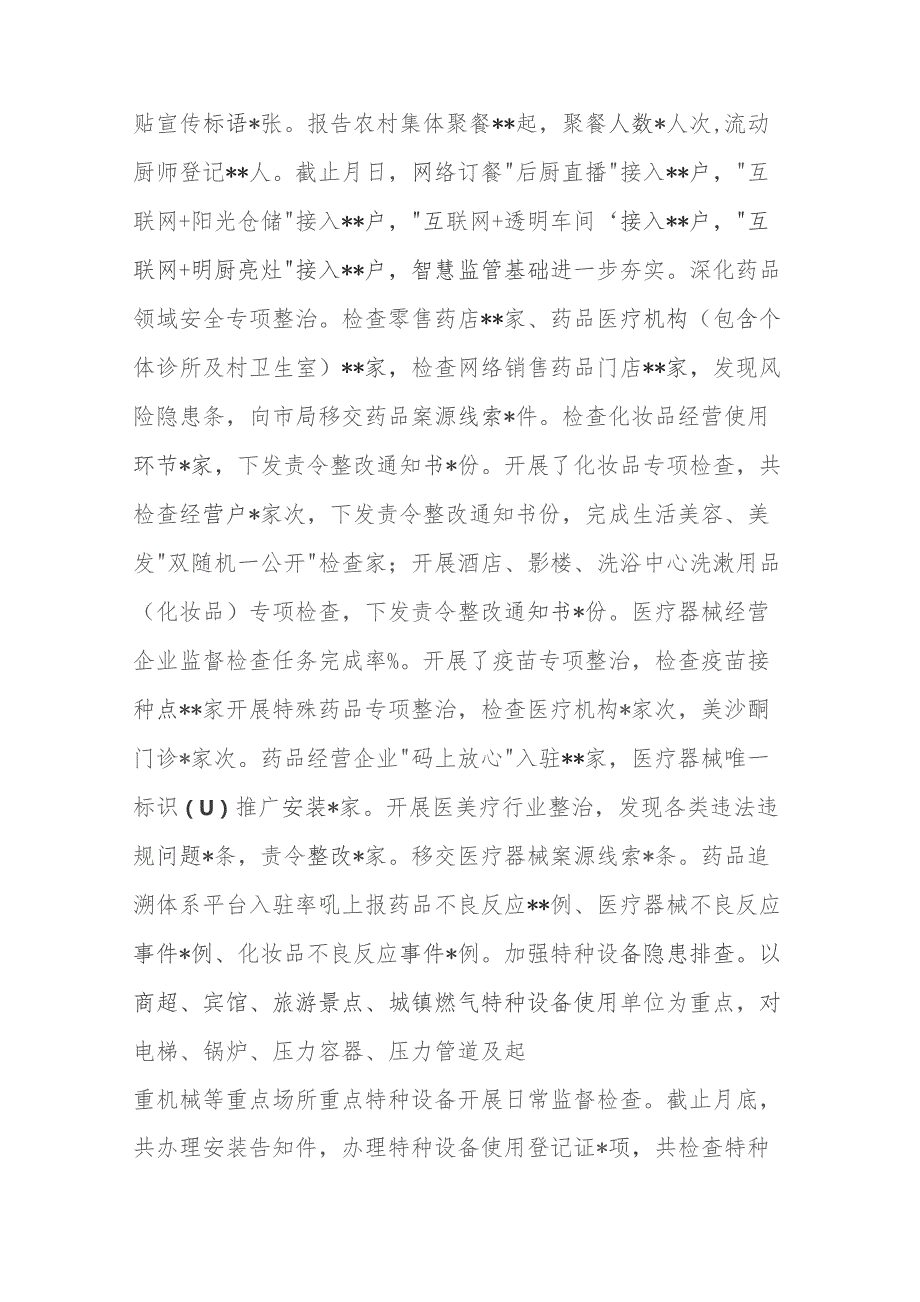 贴宣传标语*张。报告农村集体聚餐**起，聚餐人数*人次,流动
厨师登记**人。截止月日，网络订餐"后厨直播"接入**户，"互
联网+阳光仓储"接入**户，"互联网+透明车间‘接入**户，"互
联网+明厨亮灶"接入**户，智慧监管基础进一步夯实。深化药品
领域安全专项整治。检查零售药店**家、药品医疗机构（包含个
体诊所及村卫生室）**家，检查网络销售药品门店**家，发现风
险隐患条，向市局移交药品案源线索*件。检查化妆品经营使用
环节*家，下发责令整改通知书*份。开展了化妆品专项检查，共
检查经营户*家次，下发责令整改通知书份，完成生活美容、美
发"双随机一公开"检查家；开展酒店、影楼、洗浴中心洗漱用品
（化妆品）专项检查，下发责令整改通知书*份。医疗器械经营
企业监督检查任务完成率%。开展了疫苗专项整治，检查疫苗接
种点**家开展特殊药品专项整治，检查医疗机构*家次，美沙酮
门诊*家次。药品经营企业"码上放心"入驻**家，医疗器械唯一
标识(U)推广安装*家。开展医美疗行业整治，发现各类违法违
规问题*条，责令整改*家。移交医疗器械案源线索*条。药品追
溯体系平台入驻率吼上报药品不良反应**例、医疗器械不良反应
事件*例、化妆品不良反应事件*例。加强特种设备隐患排查。以
商超、宾馆、旅游景点、城镇燃气特种设备使用单位为重点，对
电梯、锅炉、压力容器、压力管道及起
重机械等重点场所重点特种设备开展日常监督检查。截止月底，
共办理安装告知件，办理特种设备使用登记证*项，共检查特种